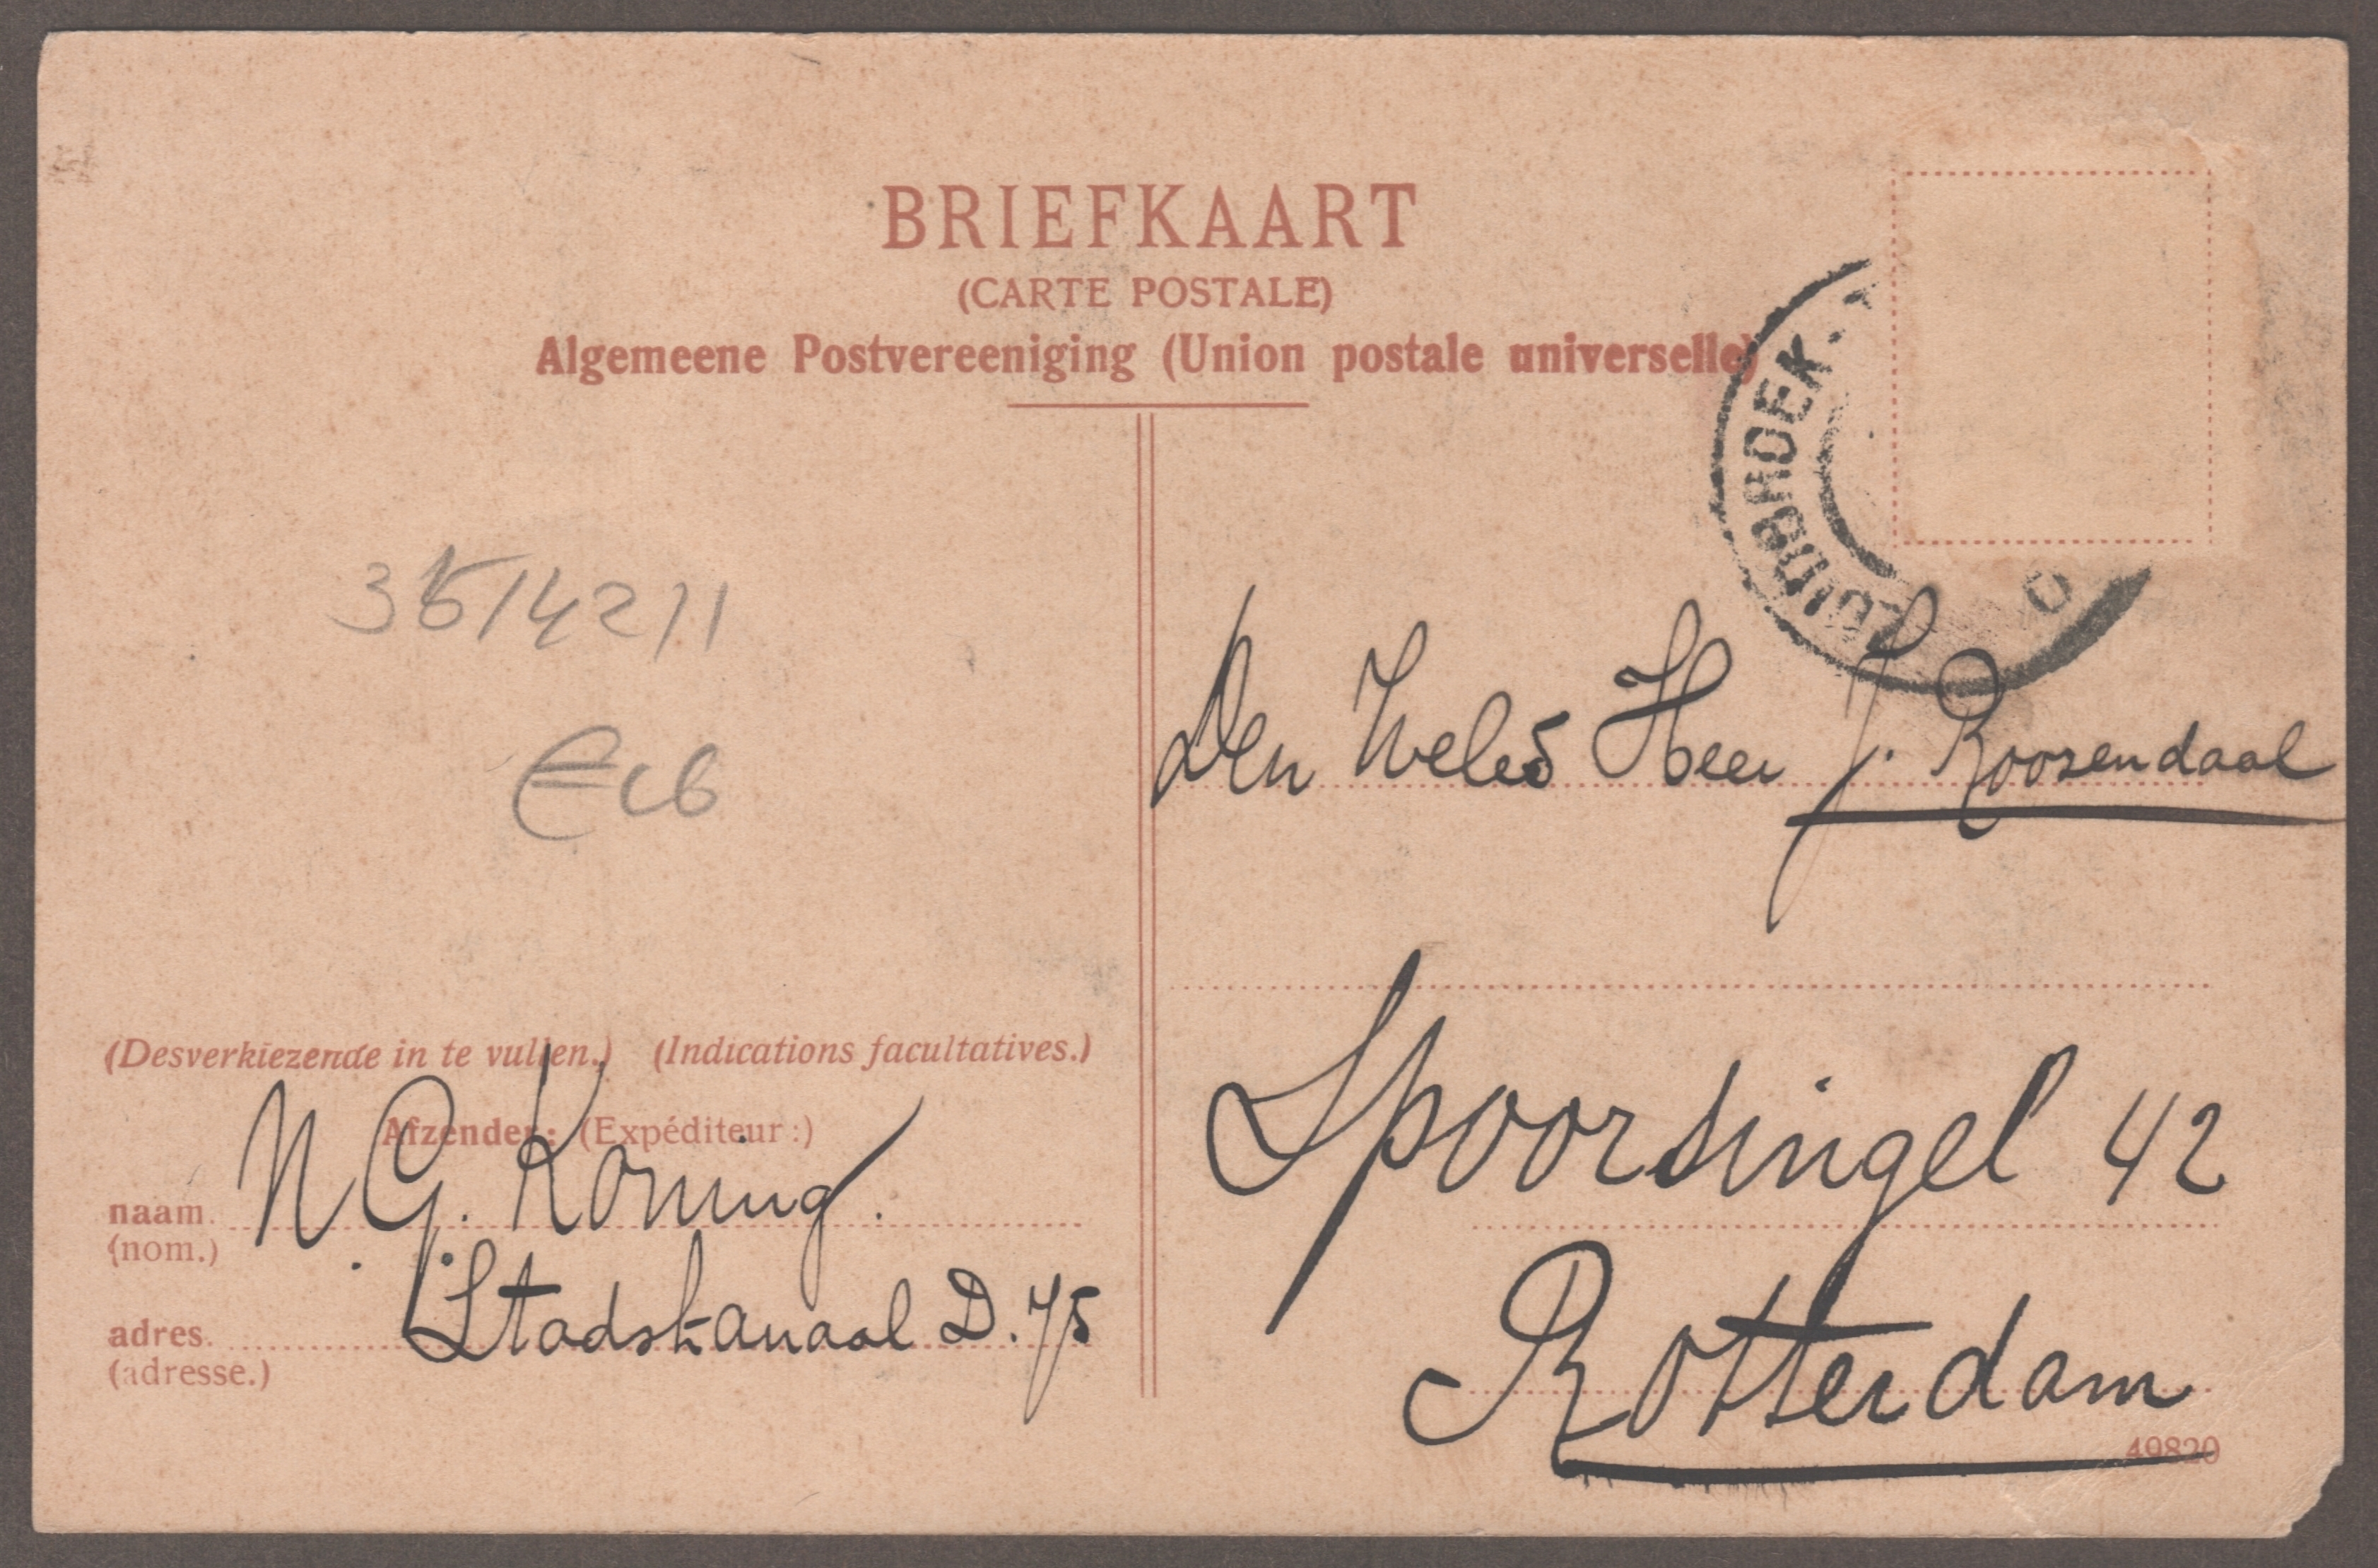 BRIEFKAART
(CARTE POSTALE)
Algemeene Postvereeniging (Union postale universelle)
ZUIDBROEK.
35/42/1
Den Heer J. Roosendaal
Spoorsingel 42
Rotterdam
(Desverkiezende in te vullen.) (Indications facultatives.)
Afzender: (Expéditeur:)
naam. N. G. Koning.
(nom.)
adres. Stadskanaal D. 75
(adresse.)
49820